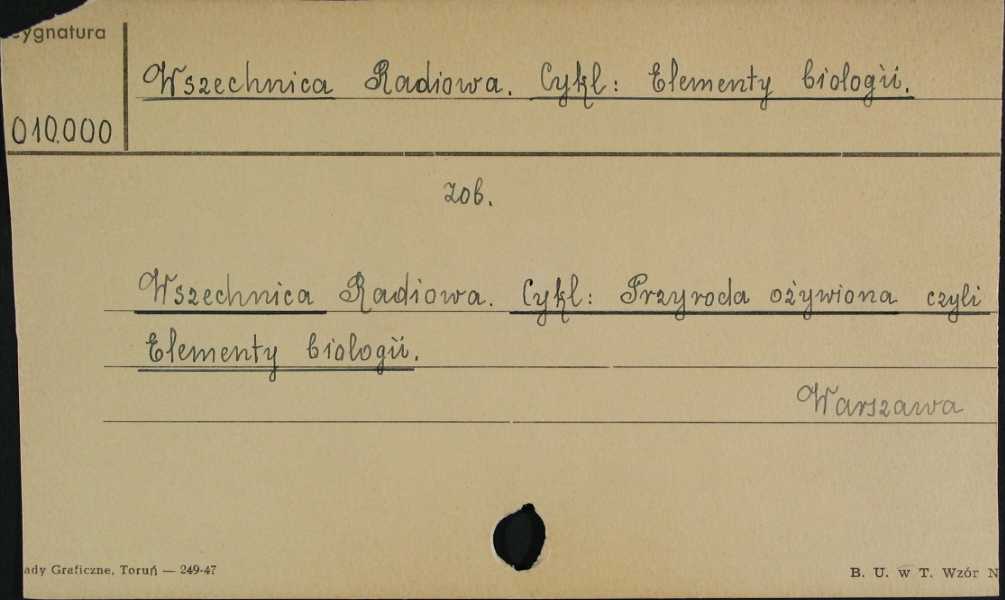 Sygnatura
Wszechnica Radiowa. Cykl: Elementy biologii.
010.000
zob.
Wszechnica Radiowa. Cykl: Przyroda ożywiona czyli
Elementy biologii.
Warszawa
ady Graficzne, Toruń — 249-47
B. U. w T. Wzór N